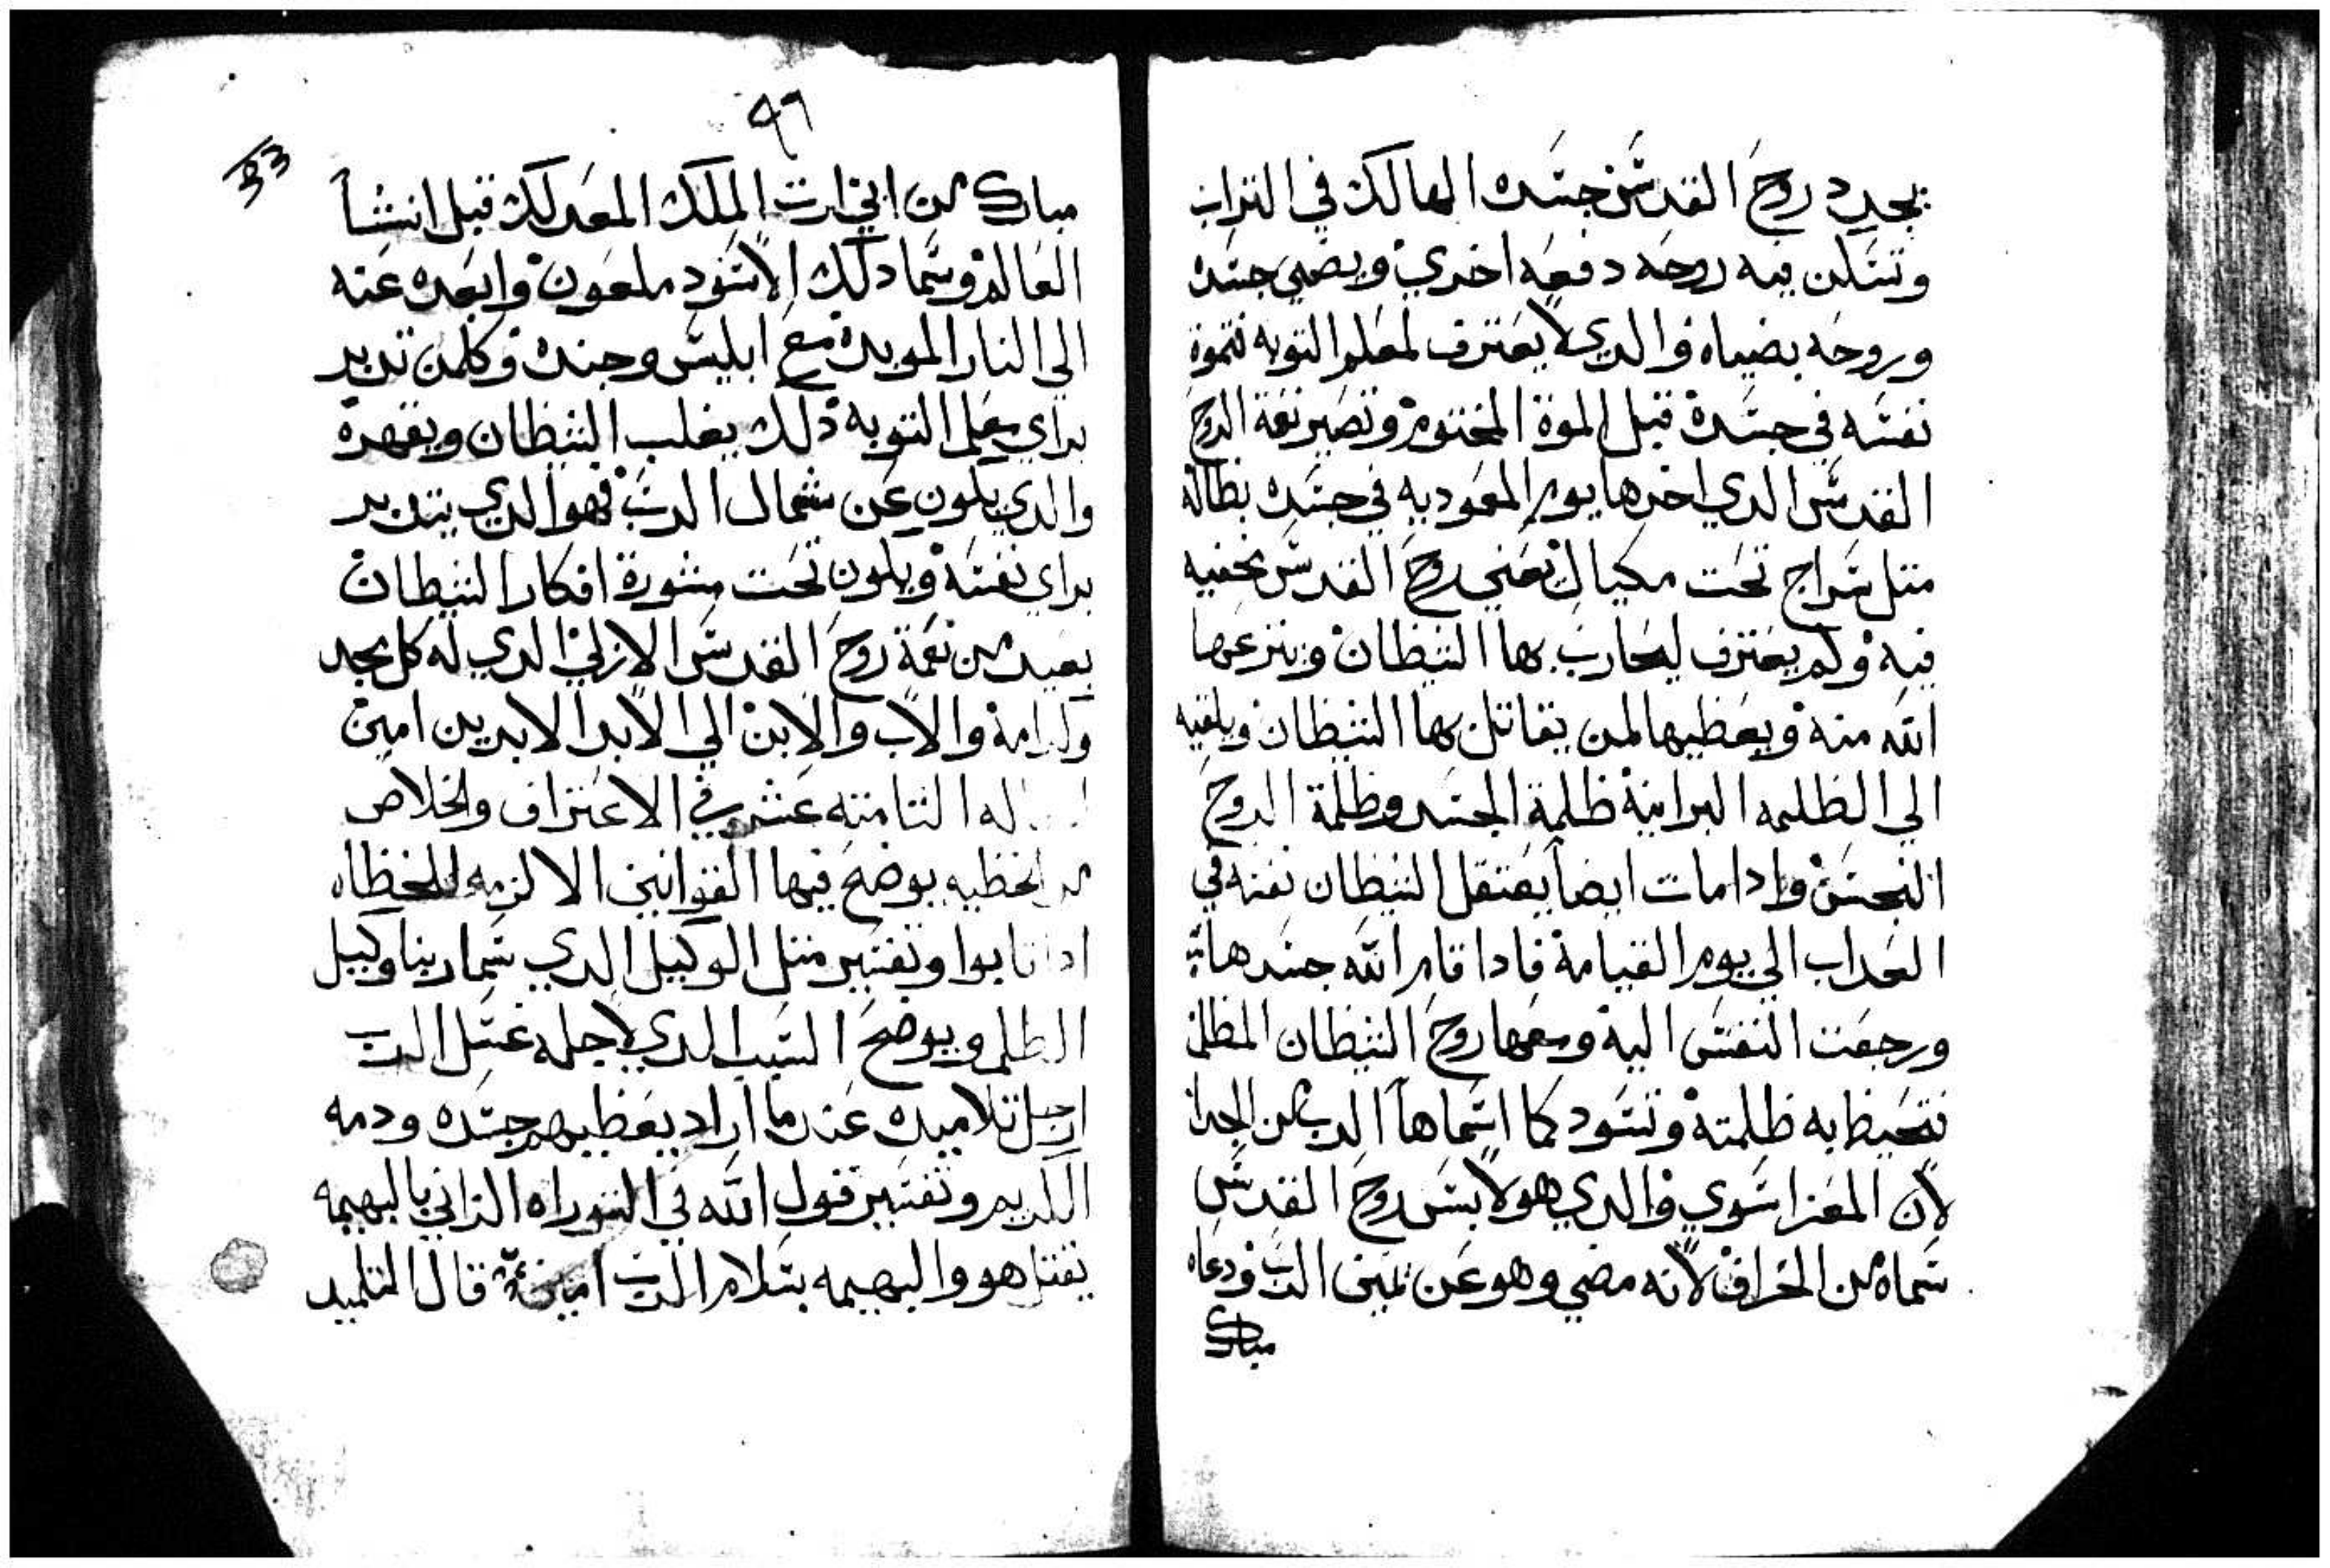 يجدد روح القدس جسده الهالك في التراب
وتسكن فيه روحه دفعه اخري ويضي جسده
وروحه بضياه والدي لا يعترف لمعلم التوبه فتموة
نفسه في جسده قبل الموة المختوم وتصير نعمة الروح
القدس الدي اخدها يوم المعموديه في جسده بطاله
متل سراج تحت مكيال يعني روح القدس مخفيه
فيه ولم يعترف ليحارب بها الشيطان وينزعها
الله منه ويعطيها لمن يقاتل بها الشيطان ويلقيه
الي الظلمه البرانية ظلمة الجسد وظلمة الروح
النجس وادا مات ايضاً يعتقل الشيطان نفسه في
العداب الي يوم القيامة فادا قام الله جسدها
ورجعت النفس اليه ومعها روح الشيطان المظلم
فتحيط به ظلمته وتسود كما اسماها الرب من الجدا
لان المعزا سوي والدي هو لابس روح القدس
سماه من الخراف لانه مضي وهو عن يمين الرب ودعاه
مبارك
٩٦
مبارك من ابي ارت الملك المعد لك قبل انشأ
العالم وسما دلك الاسود ملعون وابعده عنه
الي النار الموبده مع ابليس وجنده وكلمن تدبر
براي معلم التوبة ذلك يغلب الشيطان ويقهره
والدي يكون عن شمال الرب فهو الدي يتدبر
براي نفسه ويكون تحت مشورة افكار الشيطان
بعيد من نعمة روح القدس الازلي الدي له كل مجد
وكرامة والاب والابن الي الابد الابدين امين
التامنه عشر في الاعتراف والخلاص
من الخطيه يوضح فيها القوانين الالزمه للخطاه
ادا تابوا وتفسير متل الوكيل الدي سما ربنا وكيل
الظلم ويوضح السبب الدي لاجله غسل الرب
ارجل تلاميده عند ما اراد يعطيهم جسده ودمه
الكريم وتفسير قول الله في التوراه الزاني بالبهيمه
يقتل هو والبهيمه بسلام الرب امين قال التلميد